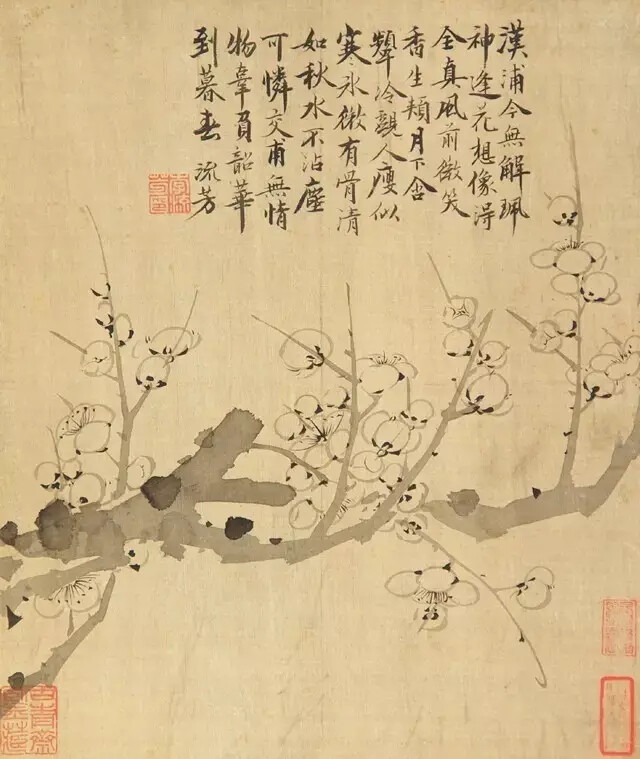 漢浦今無解珮
神逢花想像得
全真風前微笑
香生頰月下含
顰冷親人瘦似
寒冰微有骨清
如秋水不沾塵
可憐交甫無情
物辜負韶華
到暮春 流芳